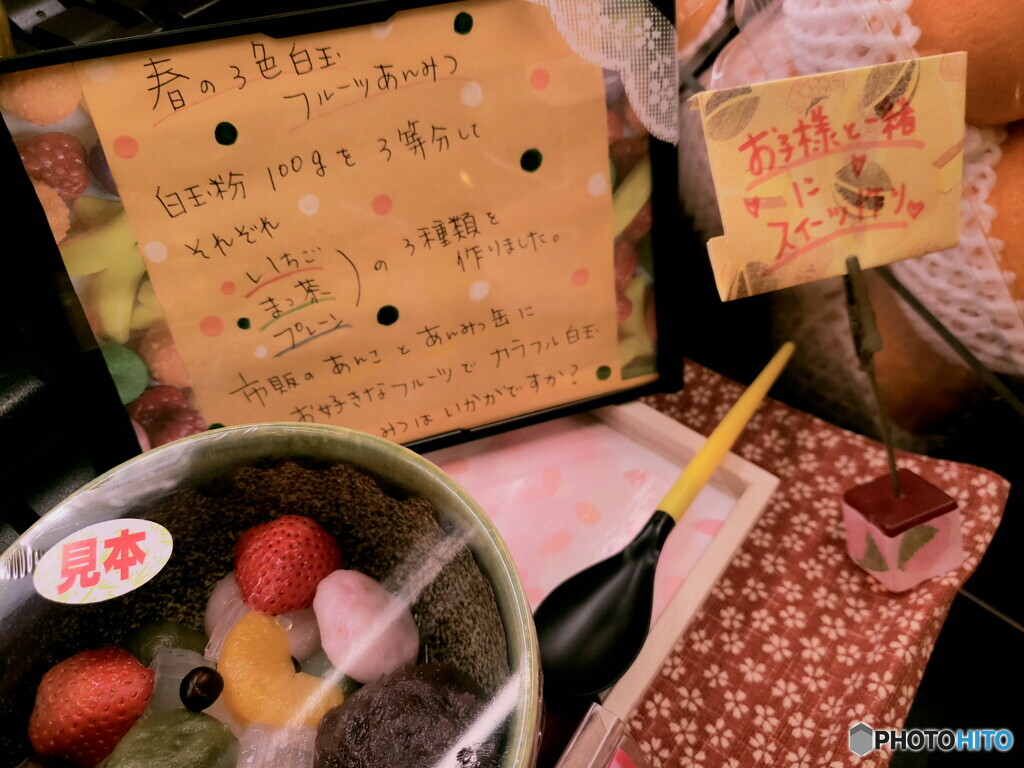 春の3色白玉
フルーツあんみつ
白玉粉100gを3等分して
それぞれ
いちご
まっ茶
プレーン
の3種類を
作りました。
市販のあんことあんみつ缶に
お好きなフルーツでカラフル白玉
みつはいかがですか?
お子様と一緒
に
スイーツ作り
見本
PHOTOHITO